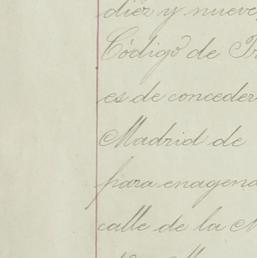 diez y nueve
Código de
es de conceder
Madrid de
para enagena
calle de la